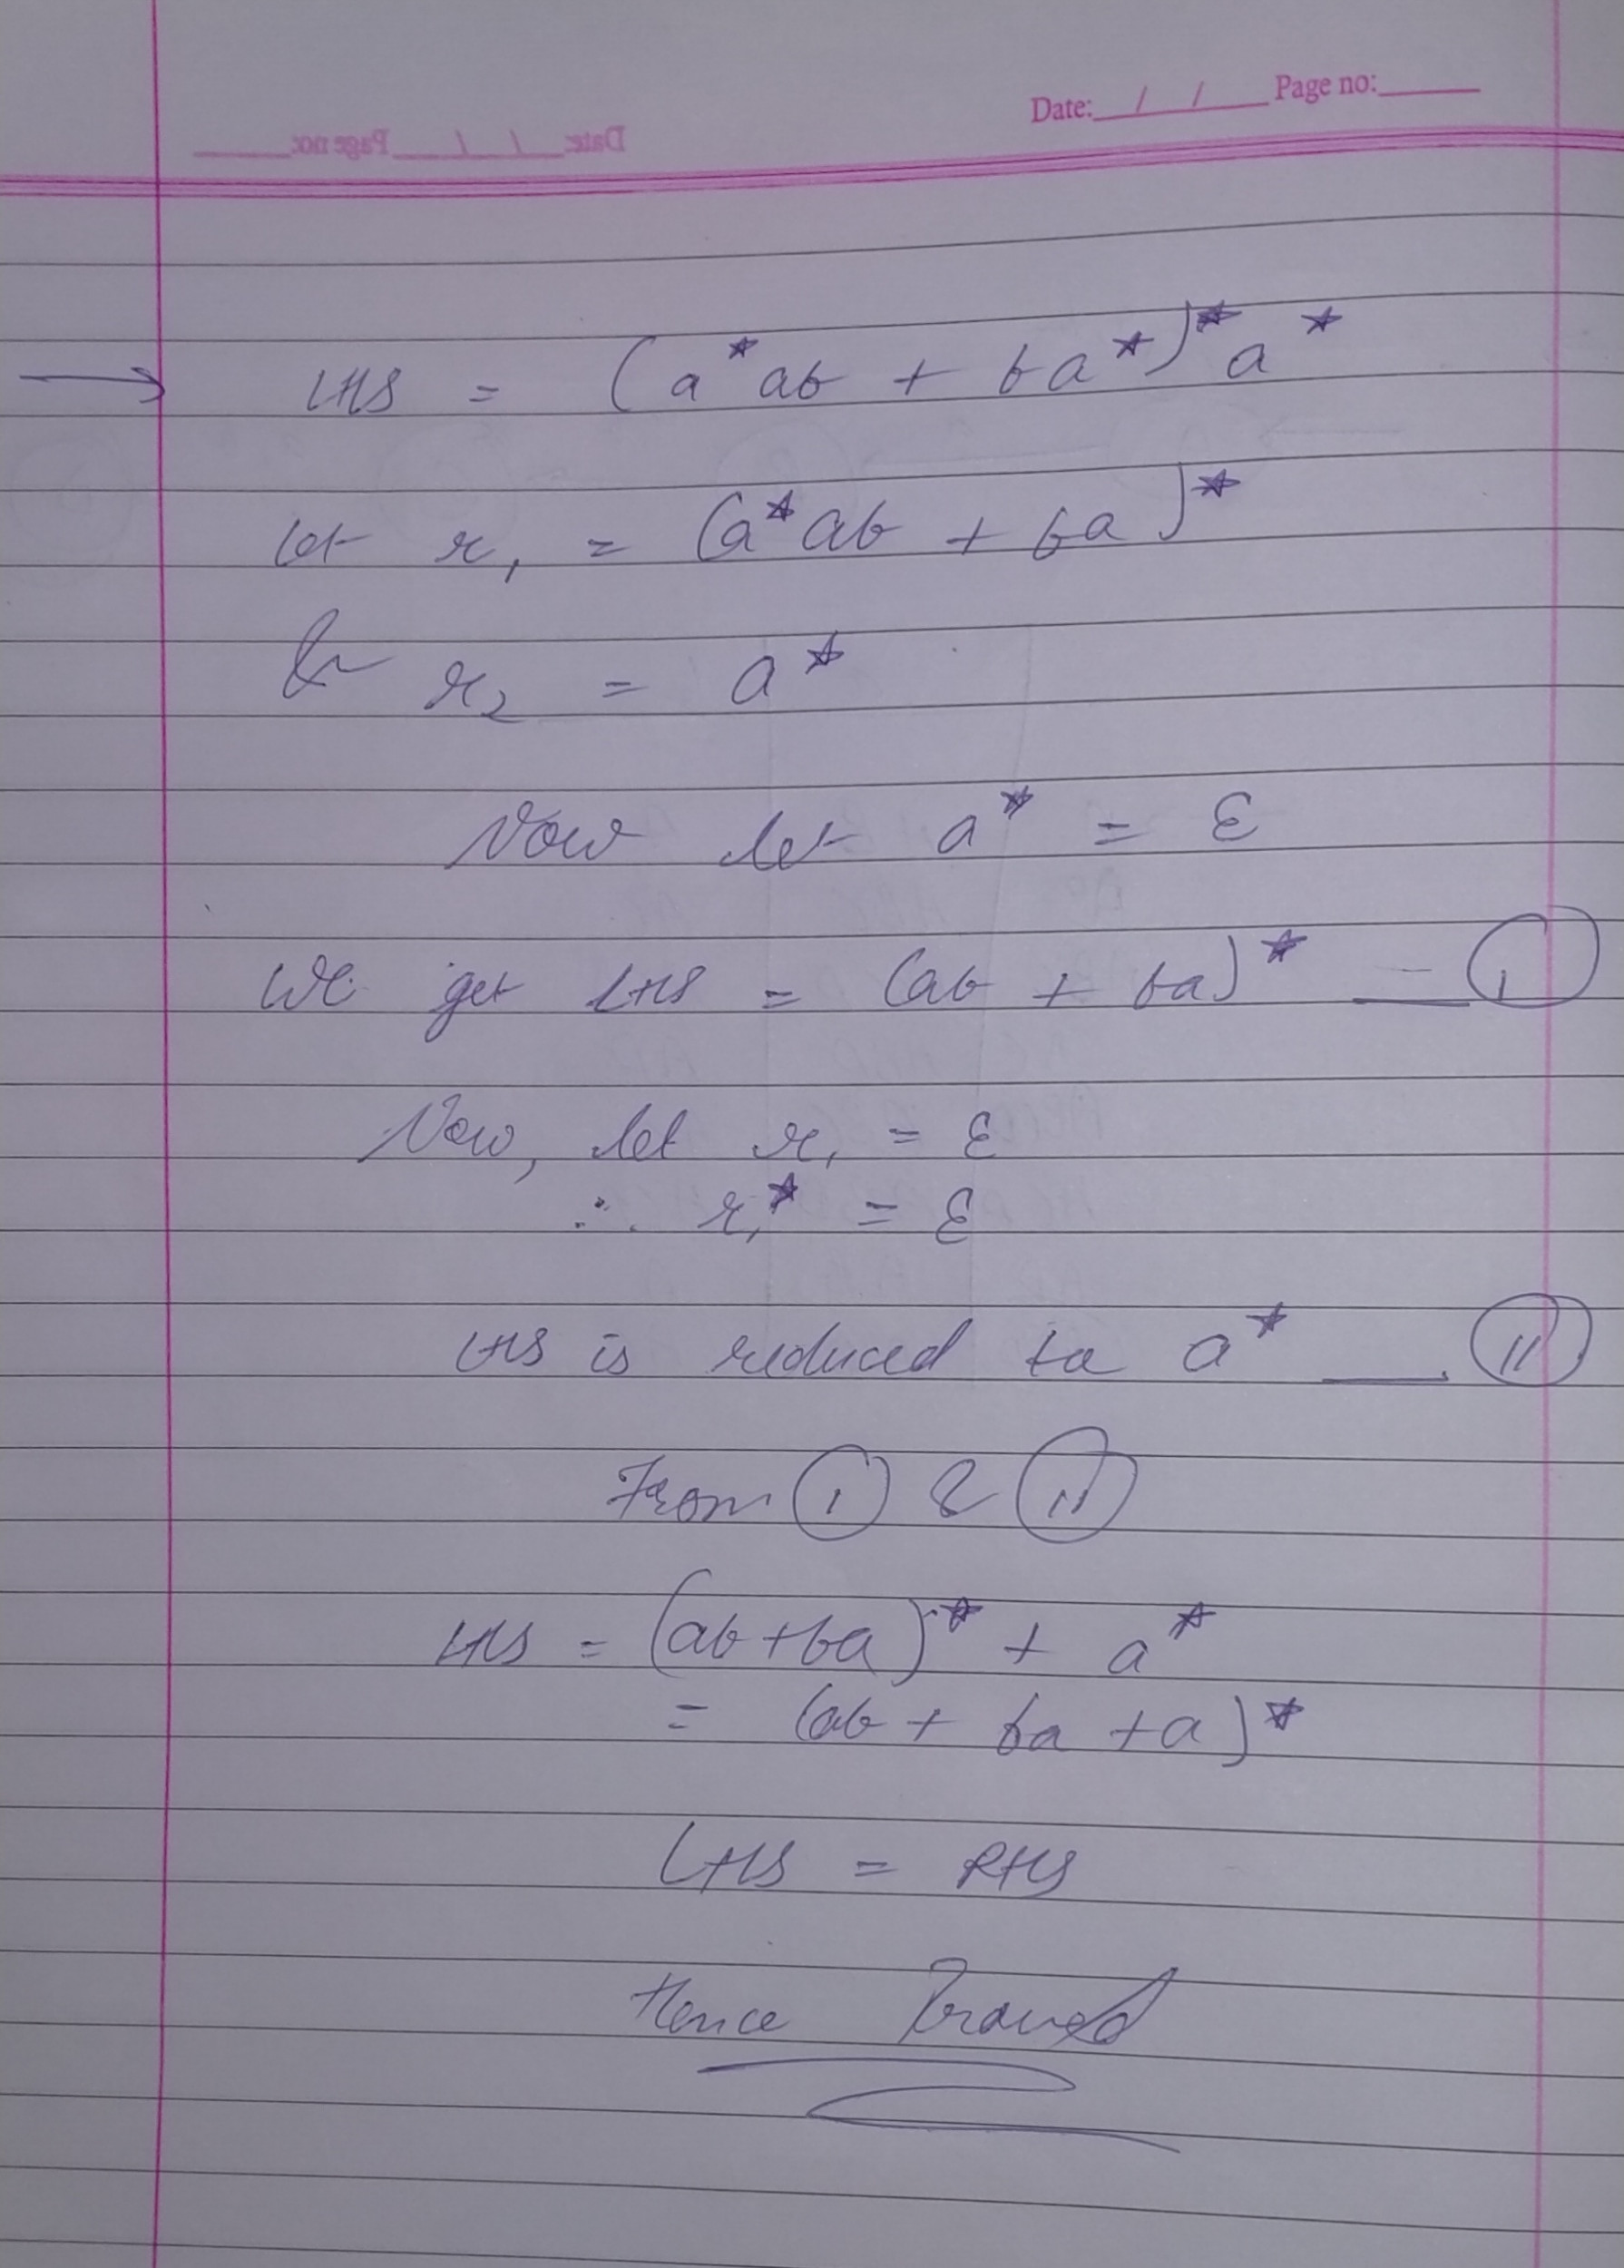 Date: / / Page no:
→ LHS = (a*ab + ba*)* a*
Let r₁ = (a*ab + ba)*
& r₂ = a*
Now let a* = ε
We get LHS = (ab + ba)* — I
Now, let r₁ = ε
∴ r₁* = ε
LHS is reduced to a* — II
From I & II
LHS = (ab+ba)* + a*
= (ab + ba + a)*
LHS = RHS
Hence Proved